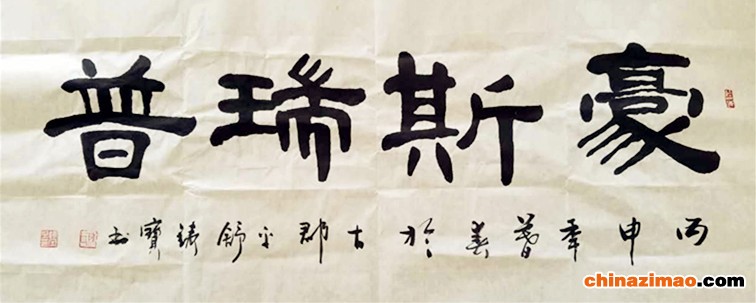 豪斯瑞普
丙申年暮春於古郡平舒寶书
chinazimao.com